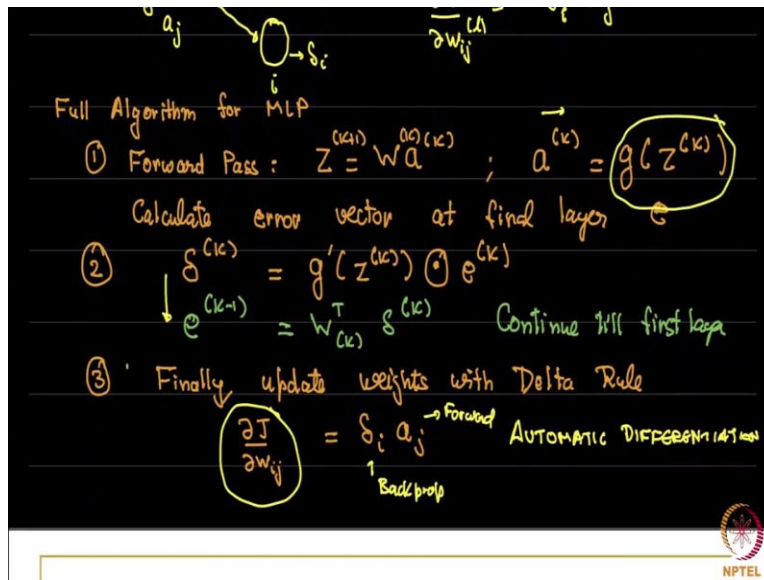 a_j
→δ_i
i
∂w_ij^(l)
Full Algorithm for MLP
① Forward Pass : z^(k+1) = W^(k) a^(k) ; a^(k) = g(z^(k))
Calculate error vector at final layer e
② δ^(k) = g'(z^(k)) ⊙ e^(k)
e^(k-1) = W_(k)^T δ^(k) Continue till first laye
③ Finally update weights with Delta Rule
∂J/∂w_ij = δ_i a_j → Forward AUTOMATIC DIFFERENTIATION
↑ Backprop
NPTEL